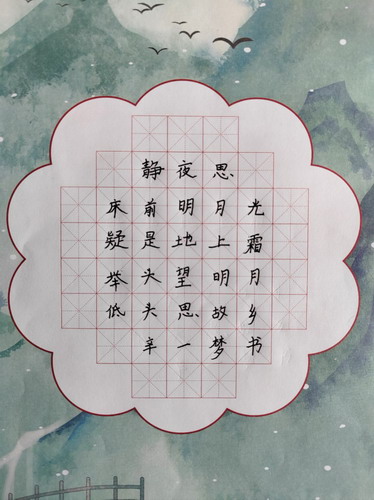 静夜思
床前明月光
疑是地上霜
举头望明月
低头思故乡
辛一梦书